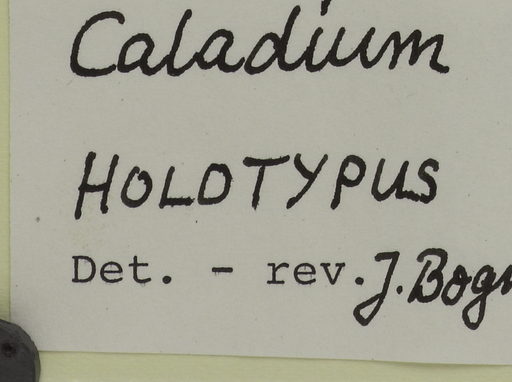 Caladium
HOLOTYPUS
Det. - rev. J. Bog